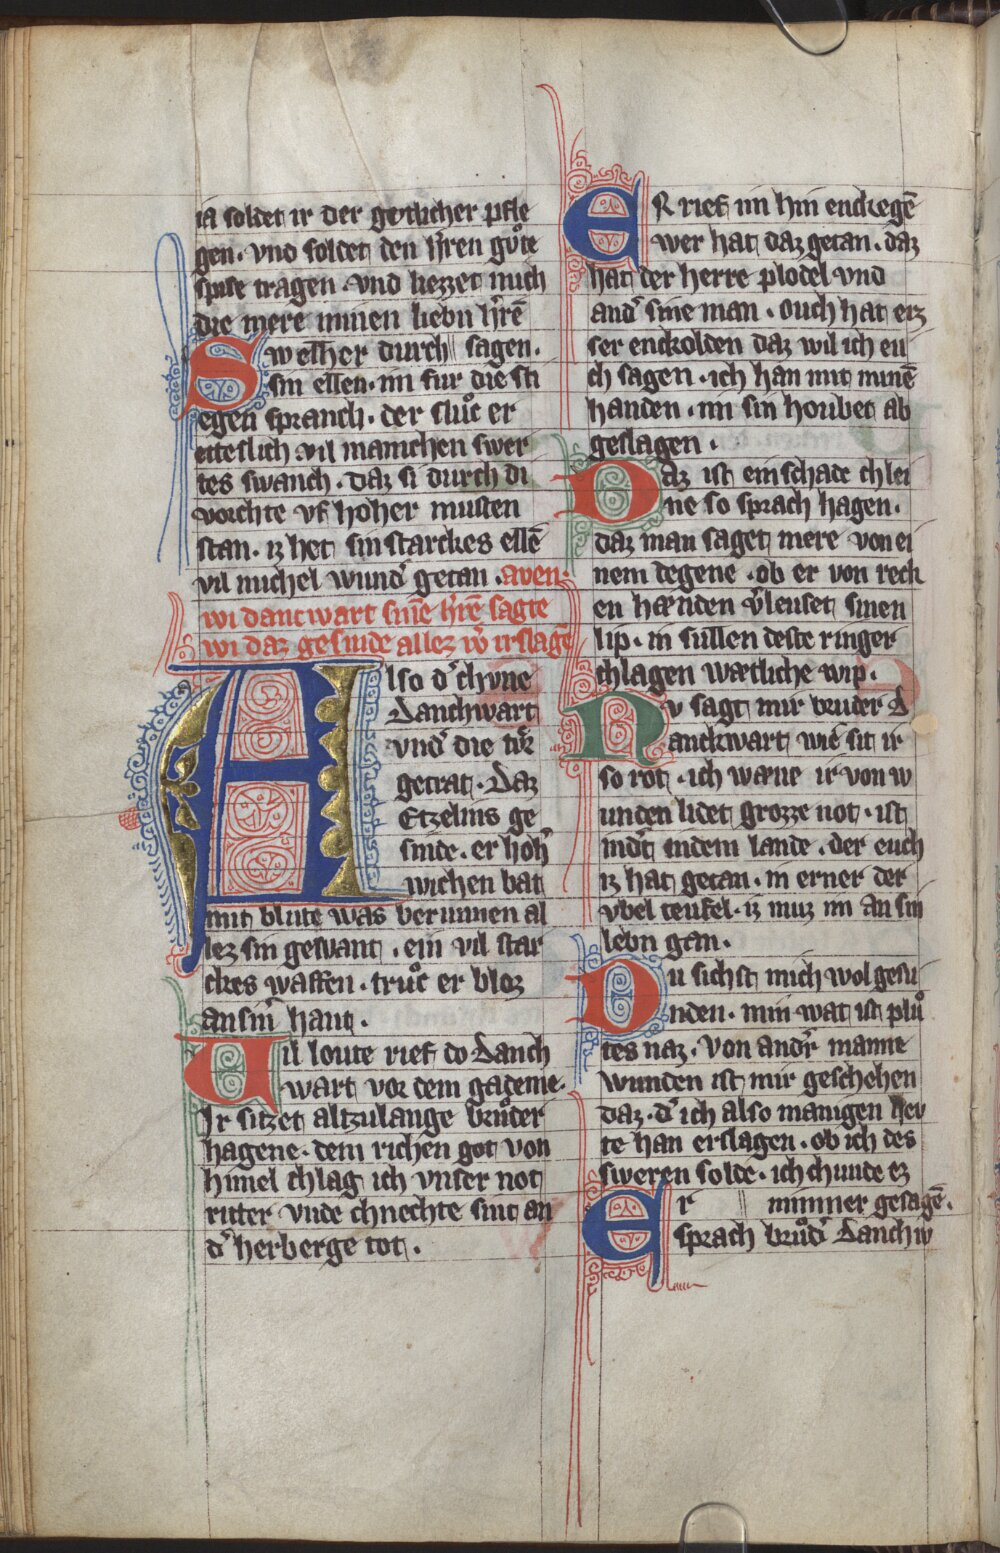 ia soldet ir der getlicher pfle
gen. vnd soldet den h'ren guͦte
spise tragen. vnd liezzet mich
die mere minen liebn h'rē
Swelher durch sagen.
sin ellen. im fur die sti
egen spranch. der sluͦc er
etteslich vil manichen swer
tes swanch. daz si durch di
vorchte vf hoher musten
stan. iz het sin starckes ellē
vil michel wund' getan. aven.
wi dancwart sinē h'rē sagte
wi daz gesinde allez w' irslagē
Also d' chvne
Danchwart
vnd' die tvͤr
getrat. Daz
Etzelins ge
sinde. er hoh'
wichen bat
mit blute was berunnen al
lez sin gewant. ein vil star
ckes waffen. truͦc er bloz
an sin' hant.
Vil loute rief do Danch
wart vor dem gademe.
Ir sitzet altzulange bruͦder
hagene. dem richen got von
himel chlag ich vnser not
ritter vnde chnechte sint an
d' herberge tot.
ER rief im hin enckegē
wer hat daz getan. daz
hat der herre plodel vnd
and' sine man. ouch hat erz
ser enckolden daz wil ich eu
ch sagen. ich han mit minē
handen. im sin houbet ab
geslagen.
Daz ist ein schade chlei
ne so sprach hagen.
daz man saget mere von ei
nem degene. ob er von reck
en hænden v'leuset sinen
lip. in sullen deste ringer
chlagen wætliche wip.
Nv sagt mir bruder D
anckwart wie sit ir
so rot. ich wæne ir von w
unden lidet grozze not. ist
ind't indem lande. der euch
iz hat getan. in erner der
vbel teufel. iz muz im an sin
lebn gan.
Du sichst mich wol gesu
nden. min wat ist pluͦ
tes naz. von and'r manne
wunden ist mir geschehen
daz. d' ich also manigen hev
te han erslagen. ob ich des
sweren solde. ich chunde ez
Er nimmer gesagē.
sprach bruͦd' Danchw